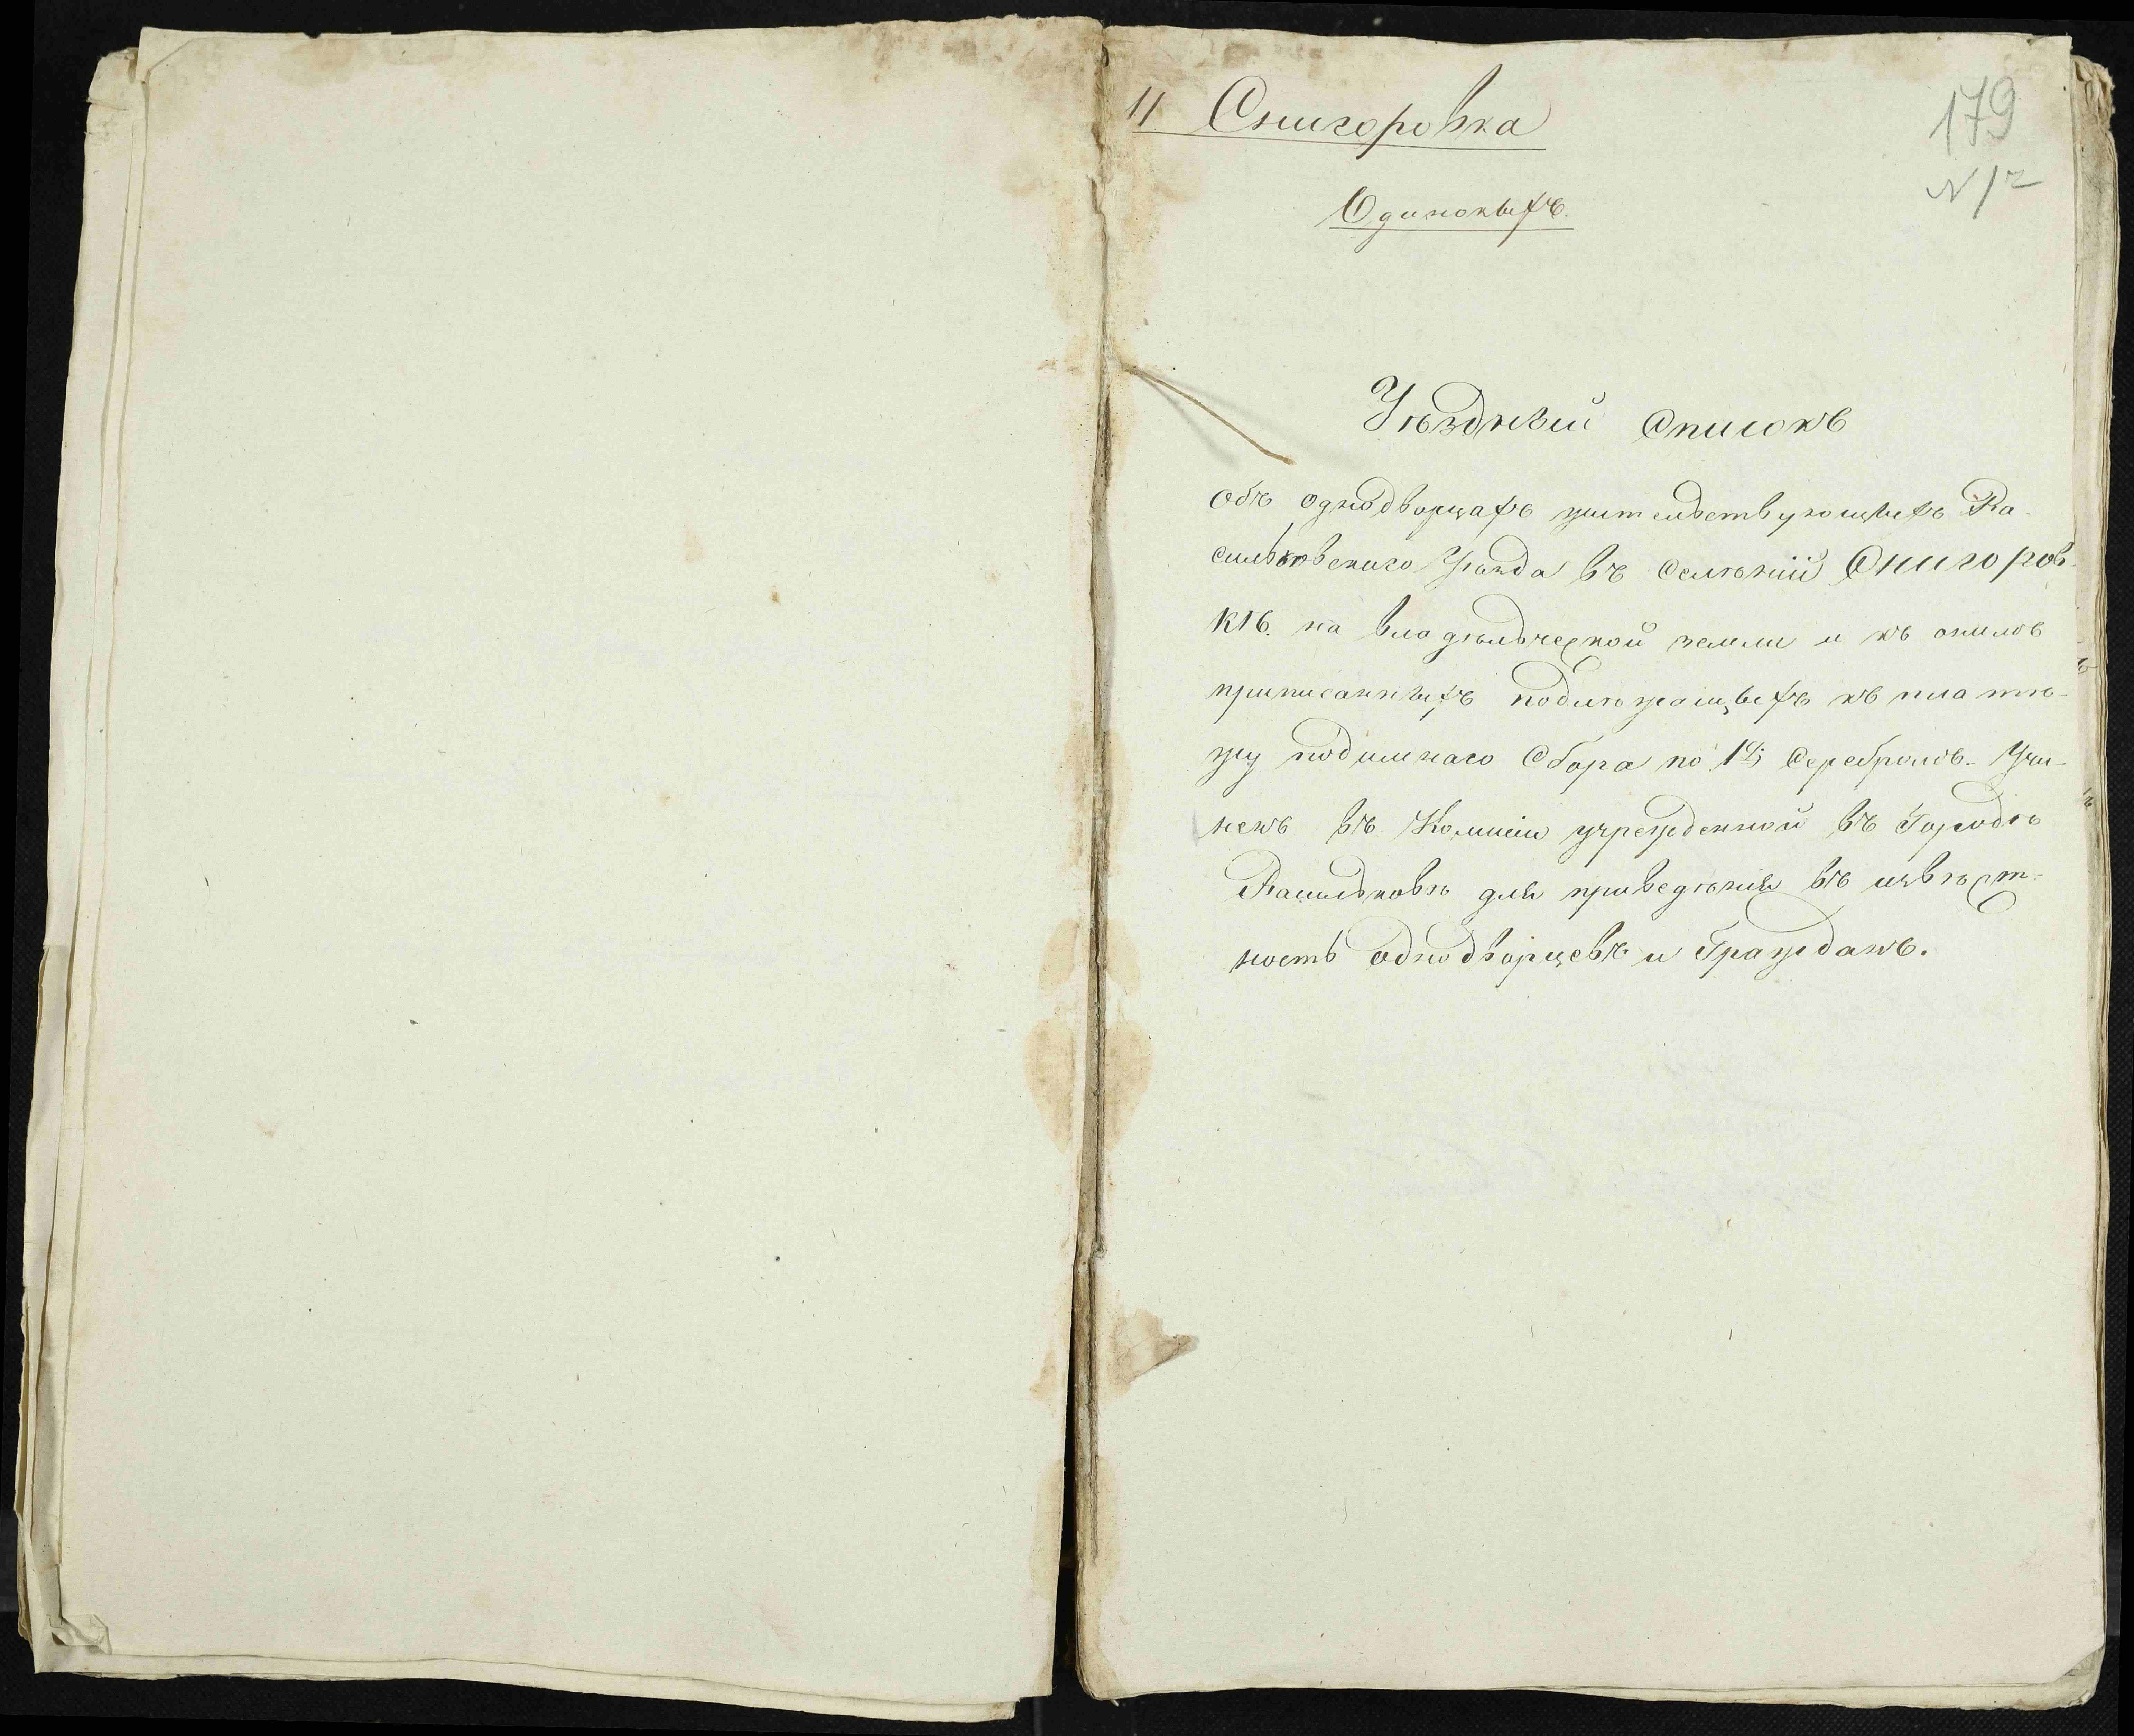 11 Снигоровка
179
N 12
Одинокихъ.
Уѣздный Списокъ
объ однодворцахъ жительствующихъ Ва-
сильковскаго Уѣзда въ селѣніи Снигоров-
кѣ на владѣльческой земли и къ онымъ
приписанныхъ подлѣжащихъ къ платѣ-
жу подымнаго Сбора по серебромъ. Учи-
ненъ въ Комисіи учрежденной въ Городѣ
Васильковѣ для приведѣнія въ извѣст-
ность однодворцевъ и Гражданъ.